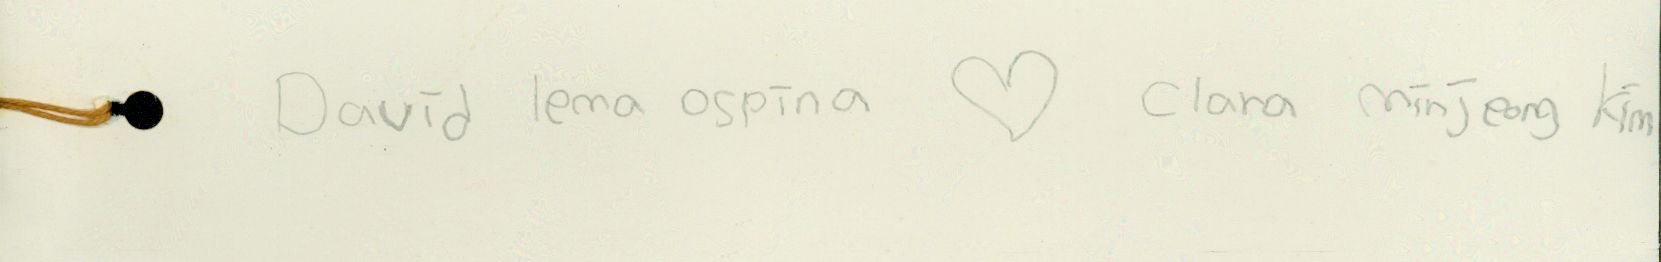 David lema ospina ♡ Clara minjeong kim